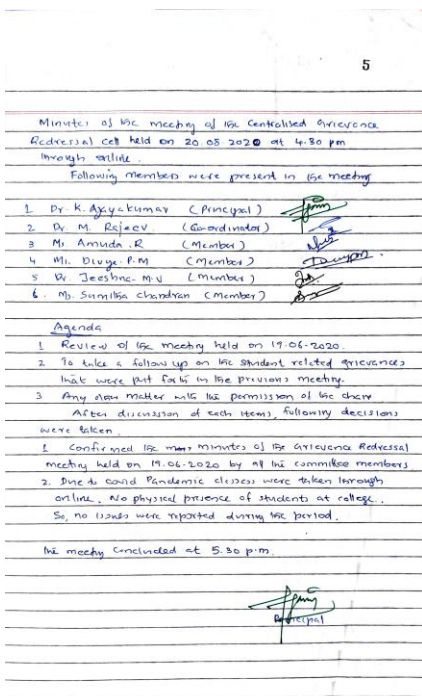 5
Minutes of the meeting of the Centralised Grievance
Redressal cell held on 20.08.2020 at 4.30 pm
through online.
Following members were present in the meeting
1 Dr. K. Ajayakumar (Principal)
2 Dr. M. Rajeev (Co-ordinator)
3 Ms Amuda .R (Member)
4 Ms. Divya. P.M (Member)
5 Dr. Jeeshna. M.V (Member)
6. Ms. Sumitha Chandran (Member)
Agenda
1 Review of the meeting held on 19.06-2020.
2 To take a follow up on the student related grievances
that were put forth in the previous meeting.
3 Any other matter with the permission of the chair
After discussion of each items, following decisions
were taken
1 Confirmed the minutes of the Grievance Redressal
meeting held on 19.06-2020 by all the committee members
2. Due to covid Pandemic classes were taken through
online. No physical presence of students at college.
So, no issues were reported during the period.
The meeting Concluded at 5.30 p.m.
Principal